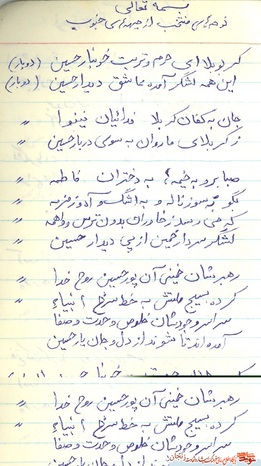 بسمه تعالی
نوحه‌های منتخب از جبهه‌های جنوب
کربلا ای حرم و تربت خونبار حسین (دوبار)
این همه لشگر آمده عاشق دیدار حسین (دوبار)
جان به کفان کربلا فدائیان نینوا
ز کربلای ما روان به سوی دربار حسین "
صبا برو به خیمه به دختران فاطمه "
بگو سوز ناله و به اشگ و آه و زمزمه "
که می‌رسد ز خاوران بدون ترس و واهمه "
لشگر سردار خمین از پی دیدار حسین "
رهبرشان خمینی آن پور حسین روح خدا
کرده بسیج ملتش به خط سرخ انبیاء "
سراسر وجودشان خلوص و وحدت و صفا
آمده‌اند تا شوند از دل و جان یار حسین
رهبرشان خمینی آن پور حسین روح خدا
کرده بسیج ملتش به خط سرخ انبیاء "
سراسر وجودشان خلوص و وحدت و صفا